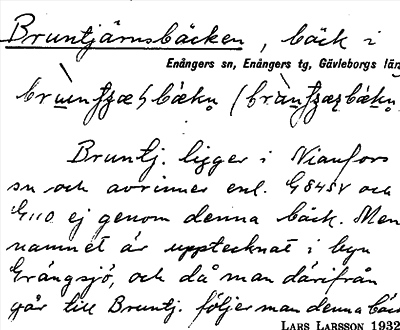 Bruntjärnsbäcken, bäck i
Enångers sn, Enångers tg, Gävleborgs län
Bruntj. ligger i Nianfors
sn och avrinner enl. G845V och
G110 ej genom denna bäck. Men
namnet är upptecknat i byn
Grängsjö, och då man därifrån
går till Bruntj. följer man denna bäck
LARS LARSSON 1932